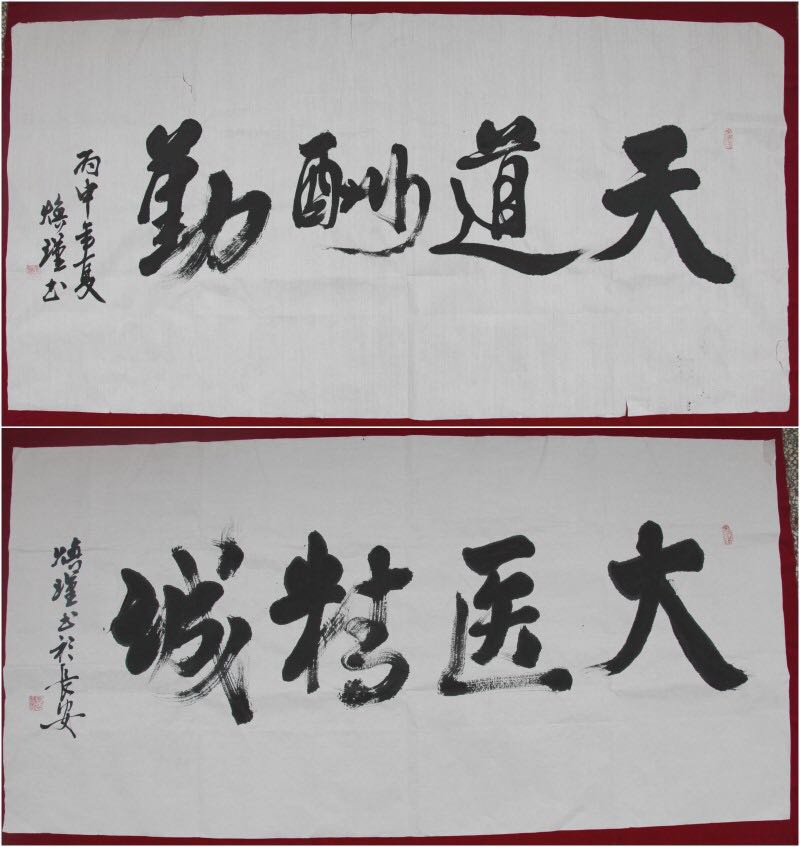 天道酬勤
丙申年夏
焕瑾书
大医精诚
焕瑾书於長安